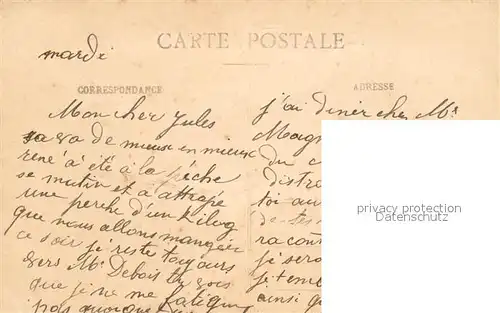 mardi
CARTE POSTALE
CORRESPONDANCE
ADRESSE
Mon cher Jules
sa va de mieux en mieux
rené a été a la pêche
se matin et a attrapé
une perche d'un kilog
que nous allons manger
ce soir je reste toujours
vers Mr Debois tu vois
que je ne me fatigue
pas
j'ai diner chez Mr
Magn
du c
distra
toi au
de tes
racon
je sera
je t'em
ainsi q
privacy protection
Datenschutz